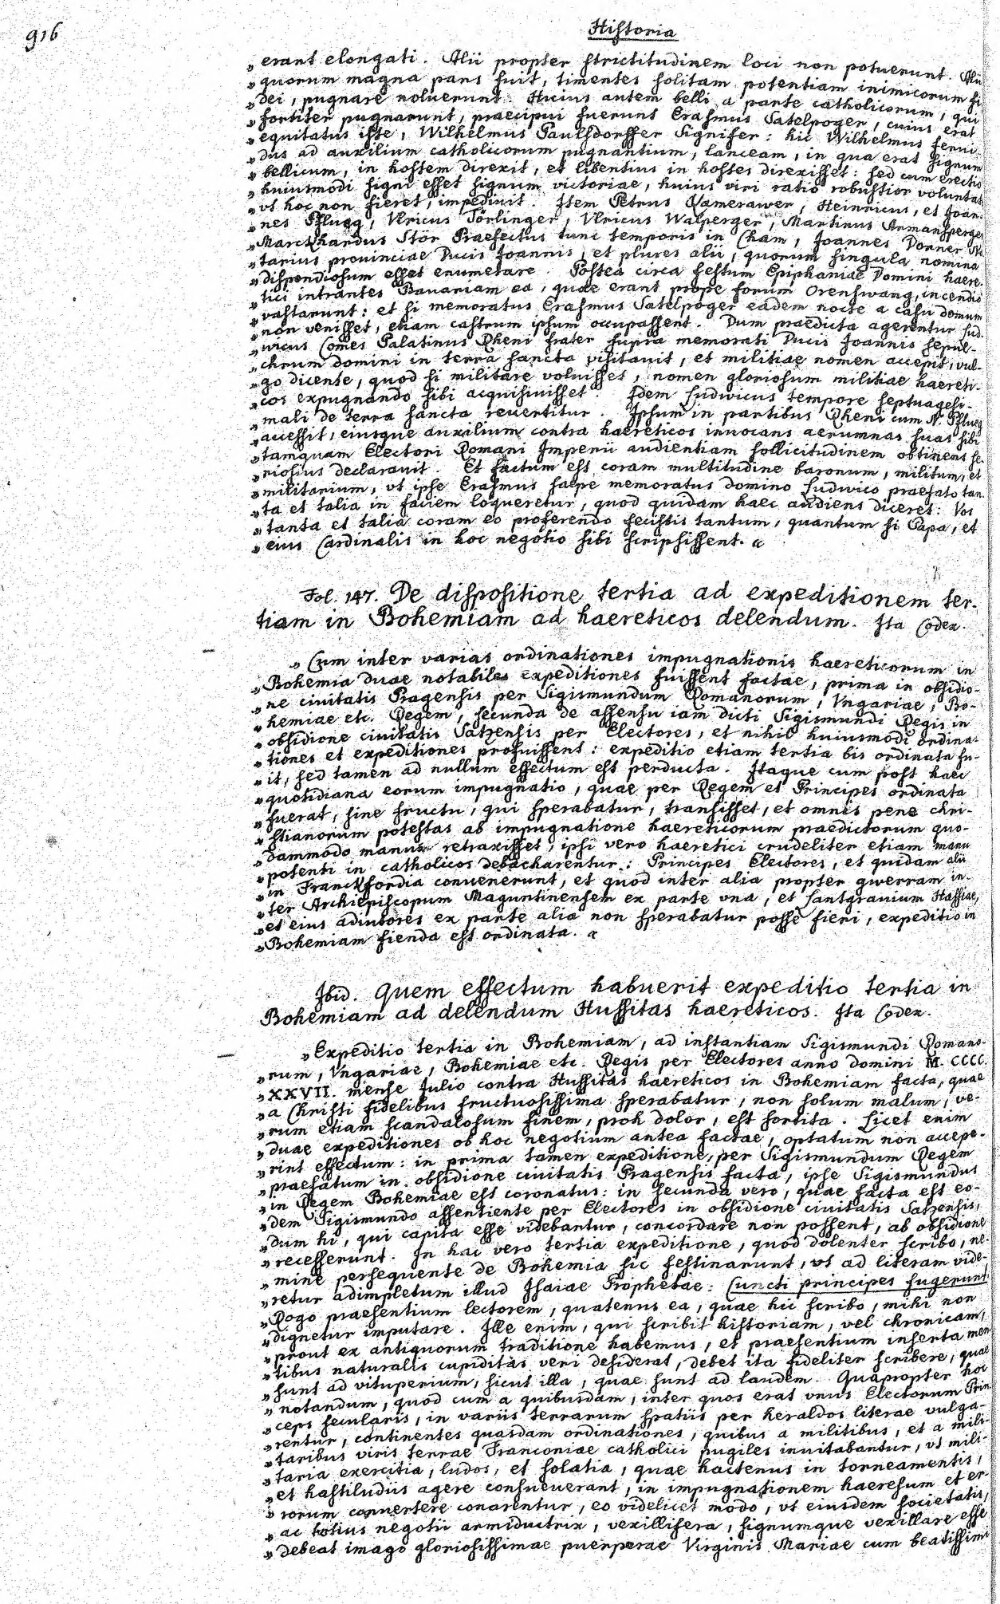 916
Historia
„ erant elongati. Alii propter strictitudinem loci non potuerunt. Alii
„ quorum magna pars fuit, timentes solitam potentiam inimicorum fi
„ dei, pugnare noluerunt. Huius autem belli a parte catholicorum, qui
„ fortiter pugnarunt, praecipui fuerunt Erasmus Satelpoger, cuius erat
„ equitatus iste, Wilhelmus Paulsdorffer Signifer: hic Wilhelmus
„ dus ad auxilium catholicorum pugnantium, lanceam, in qua erat signum
„ bellicum, in hostem direxit, et libentius in hostes direxisset: sed cum erectio
„ huiusmodi signi esset signum victoriae, huius viri ratio robustior voluntat
„ vt hoc non fieret, impediuit. Item Petrus Camerawer, Heinricus, et Joan-
„ nes Pflugg, Vlricus Törlinger, Vlricus Walperger, Martinus Armansperger
„ Marckhardus Stör Praefectus tunc temporis in Cham, Joannes Dorner
„ tarius prouinciae Ducis Joannis, et plures alii, quorum singula nomina
„ dispendiosum esset enumerare. Postea circa festum Epiphaniae Domini haere-
„ tici intrantes Bauariam ea, quae erant prope forum Orenswang, incendio
„ vastarunt: et si memoratus Erasmus Satelpoger eadem nocte a casu domum
„ non venisset, etiam castrum ipsum occupassent. Dum praedicta agerentur Lud-
„ uicus Comes Palatinus Rheni frater supra memorati Ducis Joannis sepul-
„ chrum domini in terra sancta visitauit, et militiae nomen accepit, vul-
„ go dicente, quod si militare voluisset, nomen gloriosum militiae haereti-
„ cos expugnando sibi acquisiuisset. Idem Ludwicus tempore septuagesi-
„ mali de terra sancta reuertitur. Ipsum in partibus Rheni cum N. Pflueg
„ accessit, eiusque auxilium contra haereticos inuocans aerumnas suas sibi
„ tamquam Electori Romani Imperii audientiam sollicitudinem obtinens se-
„ riosius declarauit. Et factum est coram multitudine baronum, militum, et
„ militarium, vt ipse Erasmus saepe memoratus domino Ludwico praefato tan-
„ ta et talia in faciem loqueretur, quod quidam haec audiens diceret: Vos
„ tanta et talia coram eo proferendo fecistis tantum, quantum si Papa, et
„ eius Cardinalis in hoc negotio sibi scripsissent. "
Fol. 147. De dispositione tertia ad expeditionem ter-
tiam in Bohemiam ad haereticos delendum. Ita Codex.
„ Cum inter varias ordinationes impugnationis haereticorum in
„ Bohemia duae notabiles expeditiones fuissent factae, prima in obsidio-
„ ne ciuitatis Pragensis per Sigismundum Romanorum, Vngariae, Bo-
„ hemiae etc. Regem, secunda de assensu iam dicti Sigismundi Regis in
„ obsidione ciuitatis Satzensis per Electores, et nihil huiusmodi ordina-
„ tiones et expeditiones profuissent: expeditio etiam tertia bis ordinata fu-
„ it, sed tamen ad nullum effectum est perducta. Itaque cum post haec
„ quotidiana eorum impugnatio, quae per Regem et Principes ordinata
„ fuerat, sine fructu, qui sperabatur, transisset, et omnis pene chri-
„ stianorum potestas ab impugnatione haereticorum praedictorum quo-
„ dammodo manum retraxisset, ipsi vero haeretici crudeliter etiam manu
„ potenti in catholicos debacharentur: Principes Electores, et quidam alii
„ in Franckfordia conuenerunt, et quod inter alia propter gwerram in-
„ ter Archiepiscopum Maguntinensem ex parte vna, et Lantgrauium Hassiae,
„ et eius adiutores ex parte alia non sperabatur posse fieri, expeditio in
„ Bohemiam fienda est ordinata. "
Ibid. Quem effectum habuerit expeditio tertia in
Bohemiam ad delendum Hussitas haereticos. Ita Codex.
„ Expeditio tertia in Bohemiam, ad instantiam Sigismundi Romano-
„ rum, Vngariae, Bohemiae etc. Regis per Electores anno domini M. CCCC.
„ XXVII. mense Julio contra Hussitas haereticos in Bohemiam facta, quae
„ a Christi fidelibus fructuosissima sperabatur, non solum malum, ve-
„ rum etiam scandalosum finem, proh dolor, est sortita. Licet enim
„ duae expeditiones ob hoc negotium antea factae, optatum non accepe-
„ rint effectum: in prima tamen expeditione, per Sigismundum Regem
„ praefatum in obsidione ciuitatis Pragensis facta, ipse Sigismundus
„ in Regem Bohemiae est coronatus: in secunda vero, quae facta est eo-
„ dem Sigismundo assentiente per Electores in obsidione ciuitatis Satzensis,
„ dum hi, qui capita esse videbantur, concordare non possent, ab obsidione
„ recesserunt. In hac vero tertia expeditione, quod dolenter scribo, ne-
„ mine persequente de Bohemia sic festinarunt, vt ad literam vide-
„ retur adimpletum illud Isaiae Prophetae: Cuncti principes fugerunt
„ Rogo praesentium lectorem, quatenus ea, quae hic scribo, mihi non
„ dignetur imputare. Ille enim, qui scribit historiam, vel chronicam,
„ prout ex antiquorum traditione habemus, et praesentium inserta men-
„ tibus naturalis cupiditas veri desiderat, debet ita fideliter scribere, quae
„ sunt ad vituperium, sicut illa, quae sunt ad laudem. Quapropter hoc
„ notandum, quod cum a quibusdam, inter quos erat vnus Electorum Prin
„ ceps secularis, in variis terrarum spatiis per heraldos literae vulga-
„ rentur, continentes quasdam ordinationes, quibus a militibus, et a mili-
„ taribus viris terrae Franconiae catholici pugiles inuitabantur, vt mili-
„ taria exercitia, ludos, et solatia, quae hactenus in torneamentis,
„ et hastiludiis agere consueuerant, in impugnationem haeresum et er-
„ rorum conuertere conarentur, eo videlicet modo, vt eiusdem societatis,
„ ac totius negotii armiductrix, vexillifera, signumque vexillare esse
„ debeat imago gloriosissimae puerperae Virginis Mariae cum beatissimo